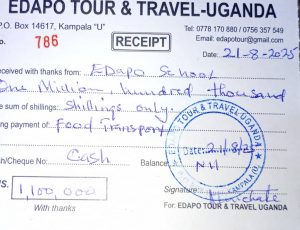 EDAPO TOUR & TRAVEL-UGANDA
P.O. Box 14617, Kampala "U"
Tel: 0778 170 880 / 0756 357 549
Email: edapotour@gmail.com
No. 786
RECEIPT
Date: 21-8-2025
eceived with thanks from: EDapo School
One Million, hundred thousand
e sum of shillings: Shillings only.
ing payment of: Food Transport
sh/Cheque No: Cash
Balance: Nil
EDAPO TOUR & TRAVEL UGANDA
Date: 21/8/25
KAMPALA (U)
HS. 1,100,000
With thanks
Signature:
For: EDAPO TOUR & TRAVEL UGANDA